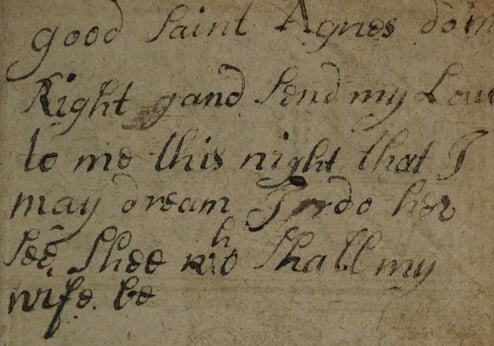 good Saint Agnes do m
Right gand Send my Lou
to me this night that I
may dream I do her
see, Shee who Shall my
wife be